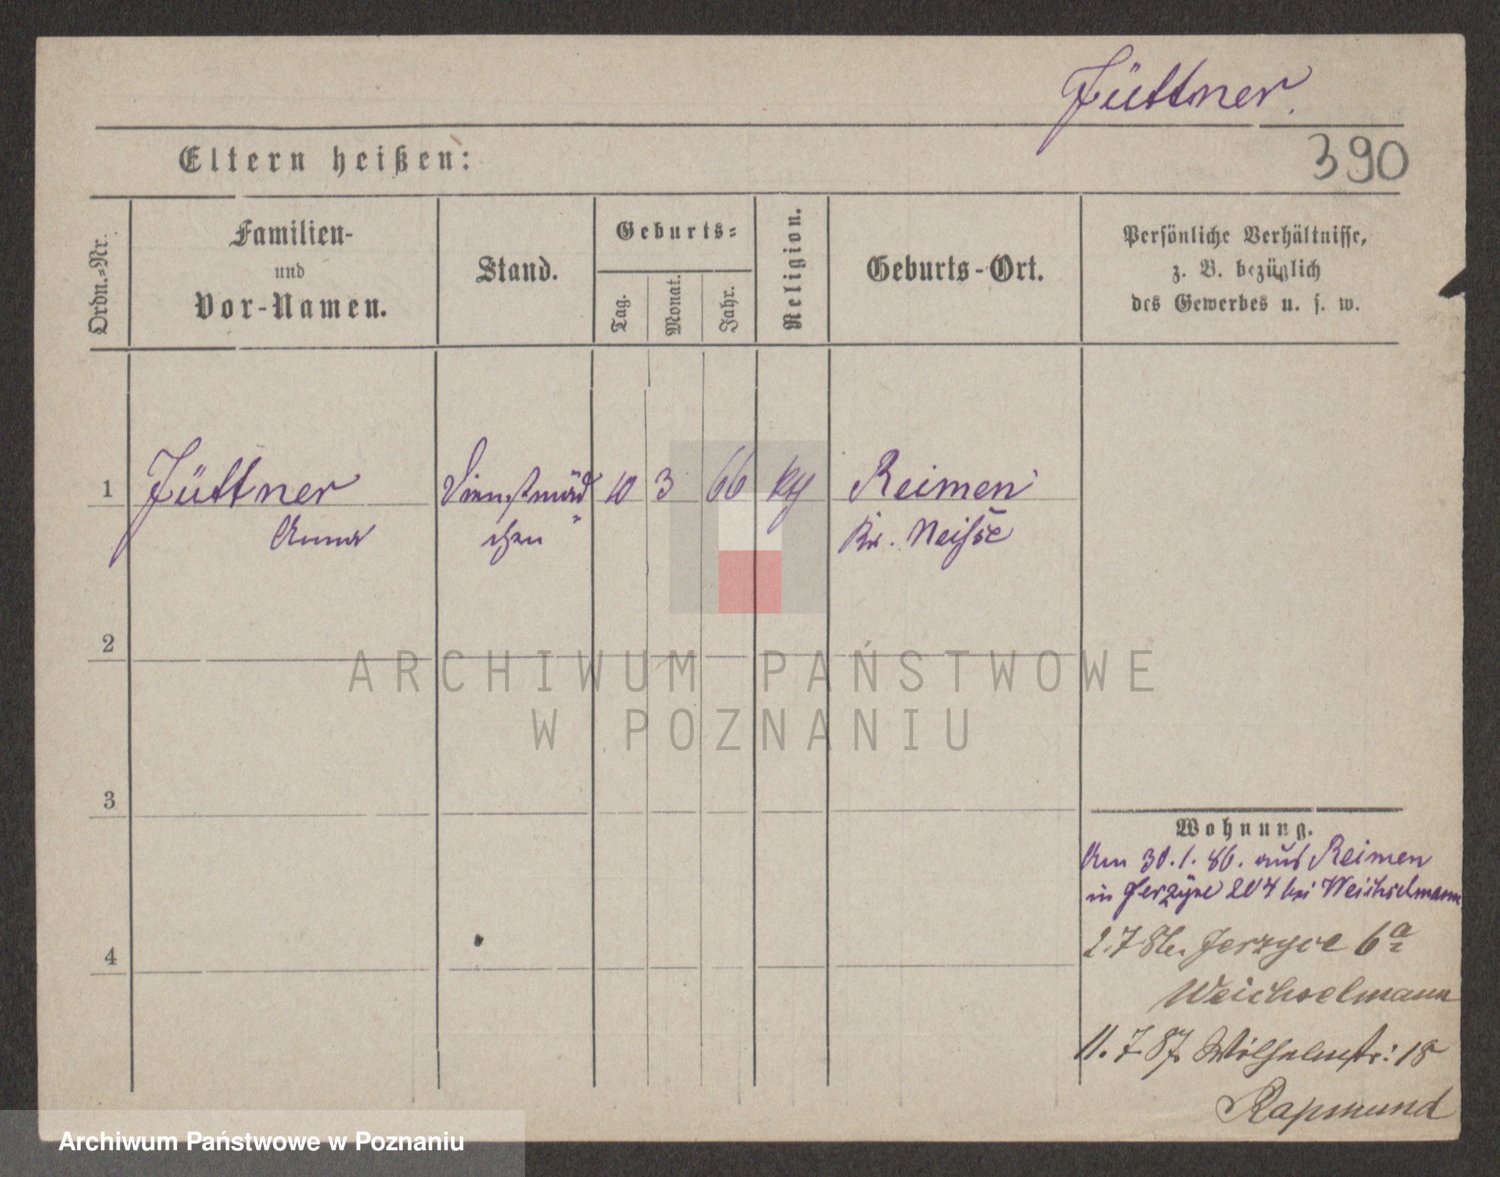 Jüttner.
390
Eltern heißen:
Ordn.=Nr.
Familien-
und
Vor-Namen.
Stand.
Geburts=
Tag.
Monat.
Jahr.
Religion.
Geburts-Ort.
Persönliche Verhältnisse,
z. B. bezüglich
des Gewerbes u. s. w.
1 Jüttner Dienstmäd 10 3 66 Reimen
Anna chen Kr. Neisse
2
3
4
Wohnung.
Am 30.1.86. aus Reimen
in Jerzyce 204 bei Weichselmann
2.7.86. Jerzyce 6a
Weichselmann
11.7.87. Wilhelmstr: 18
Rapmund
ARCHIWUM PAŃSTWOWE
W POZNANIU
Archiwum Państwowe w Poznaniu